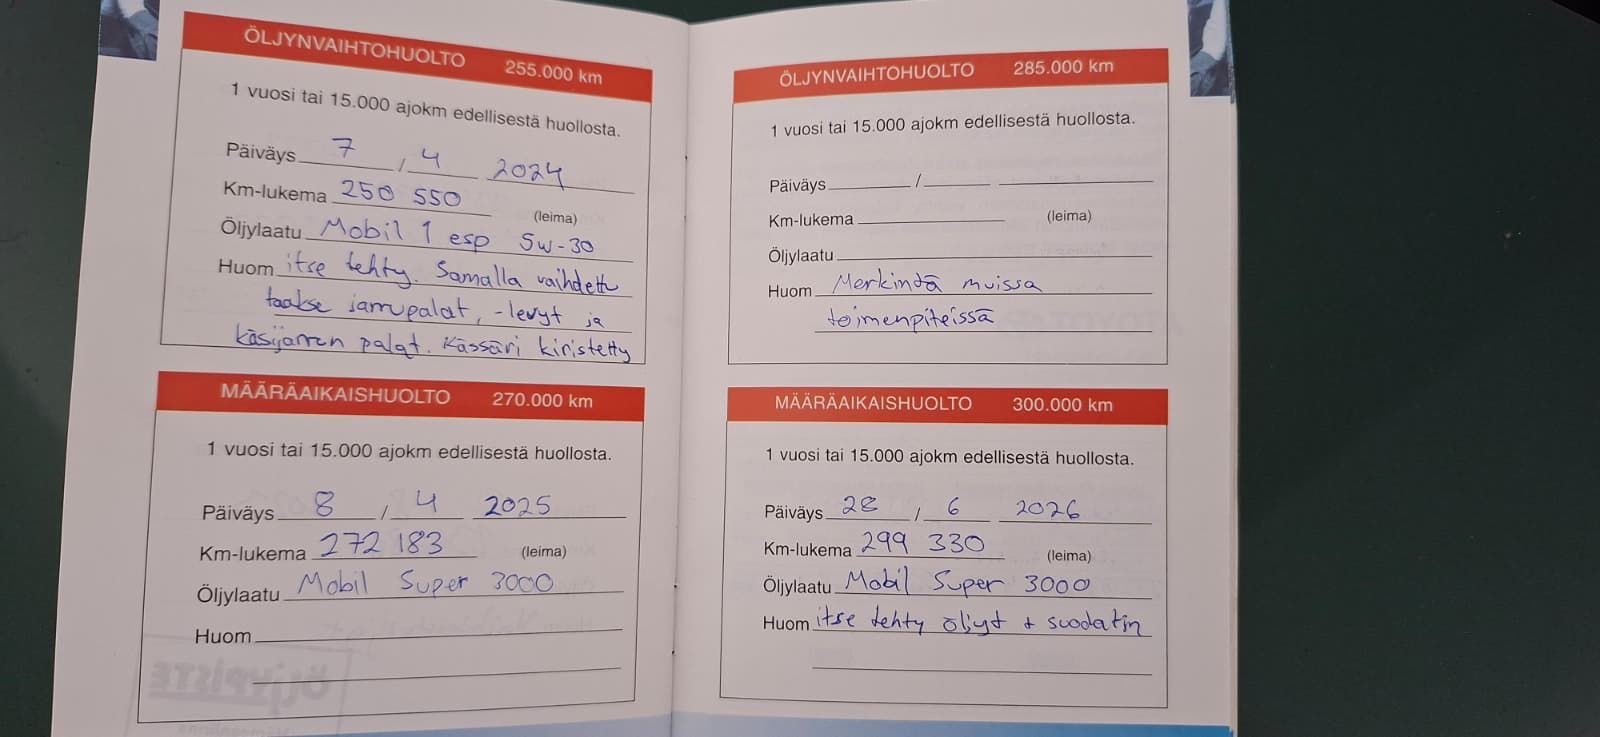 ÖLJYNVAIHTOHUOLTO 255.000 km
1 vuosi tai 15.000 ajokm edellisestä huollosta.
Päiväys 7 / 4 2024
Km-lukema 250 550
(leima)
Öljylaatu Mobil 1 esp 5w-30
Huom itse tehty. Samalla vaihdettu
taakse jarrupalat, -levyt ja
käsijarrun palat. Kässäri kiristetty
MÄÄRÄAIKAISHUOLTO 270.000 km
1 vuosi tai 15.000 ajokm edellisestä huollosta.
Päiväys 8 / 4 2025
Km-lukema 272 183 (leima)
Öljylaatu Mobil Super 3000
Huom
ÖLJYNVAIHTOHUOLTO 285.000 km
1 vuosi tai 15.000 ajokm edellisestä huollosta.
Päiväys /
Km-lukema (leima)
Öljylaatu
Huom Merkintä muissa
toimenpiteissä
MÄÄRÄAIKAISHUOLTO 300.000 km
1 vuosi tai 15.000 ajokm edellisestä huollosta.
Päiväys 28 / 6 2026
Km-lukema 299 330 (leima)
Öljylaatu Mobil Super 3000
Huom itse tehty öljyt + suodatin